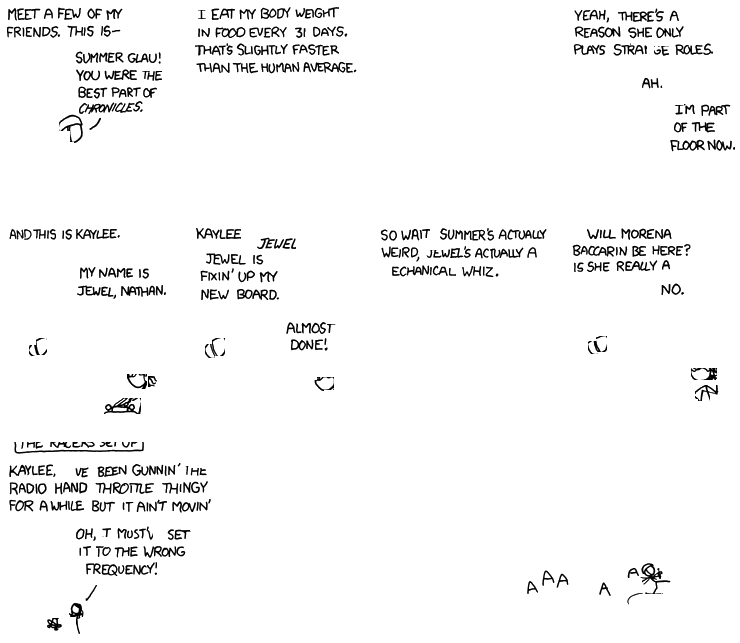 MEET A FEW OF MY
FRIENDS. THIS IS—
SUMMER GLAU!
YOU WERE THE
BEST PART OF
CHRONICLES.
I EAT MY BODY WEIGHT
IN FOOD EVERY 31 DAYS.
THAT'S SLIGHTLY FASTER
THAN THE HUMAN AVERAGE.
YEAH, THERE'S A
REASON SHE ONLY
PLAYS ROLES.
AH.
I'M PART
OF THE
FLOOR NOW.
AND THIS IS KAYLEE.
MY NAME IS
JEWEL, NATHAN.
KAYLEE
JEWEL
JEWEL IS
FIXIN' UP MY
NEW BOARD.
ALMOST
DONE!
SO WAIT SUMMER'S ACTUALLY
WEIRD, JEWEL'S ACTUALLY A
ECHANICAL WHIZ.
WILL MORENA
BACCARIN BE HERE?
IS SHE REALLY A
NO.
THE RACERS SET UP
KAYLEE, VE BEEN GUNNIN' THE
RADIO HAND THROTTLE THINGY
FOR A WHILE BUT IT AIN'T MOVIN'
OH, I MUST'V SET
IT TO THE WRONG
FREQUENCY!
A A A A A